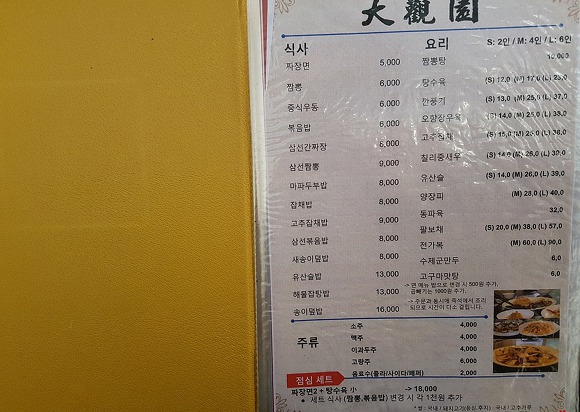 大觀園
식사
짜장면 5,000
짬뽕 6,000
중식우동 6,000
볶음밥 6,000
삼선간짜장 8,000
삼선짬뽕 9,000
마파두부밥 8,000
잡채밥 8,000
고추잡채밥 9,000
삼선볶음밥 8,000
새송이덮밥 8,000
유산슬밥 13,000
해물잡탕밥 13,000
송이덮밥 16,000
요리 S: 2인 / M: 4인 / L: 6인
짬뽕탕 10,000
탕수육 (S) 12,0 (M) 17,0 (L) 25,0
깐풍기 (S) 13,0 (M) 25,0 (L) 37,0
오향장육 (S) 14,0 (M) 25,0 (L) 33,0
고추잡채 (S) 15,0 (M) 25,0 (L) 36,0
칠리중새우 (S) 14,0 (M) 26,0 (L) 39,0
유산슬 (S) 14,0 (M) 26,0 (L) 39,0
양장피 (M) 28,0 (L) 40,0
동파육 32,0
팔보채 (S) 20,0 (M) 38,0 (L) 57,0
전가복 (M) 60,0 (L) 90,0
수제군만두 6,0
고구마맛탕 6,0
-> 면 메뉴 밥으로 변경 시 500원 추가,
곱빼기는 1000원 추가.
-> 주문과 동시에 즉석에서 조리
되므로 시간이 다소 걸립니다.
주류
소주 4,000
맥주 4,000
이과두주 4,000
고량주 6,000
음료수(콜라/사이다/페퍼) 2,000
점심 세트
짜장면2 + 탕수육 小 -> 18,000
* 세트 식사 (짬뽕,볶음밥) 변경 시 각 1천원 추가
* 쌀 : 국내 / 돼지고기(등심,후지) : 국내 / 고추가루